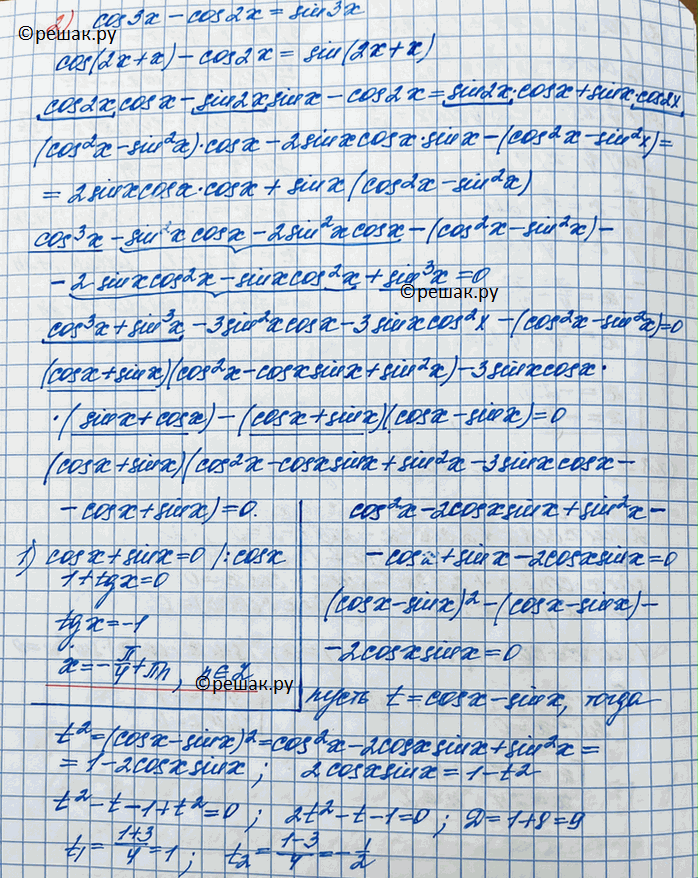 2) cos3x - cos2x = sin3x
©решак.ру
cos(2x+x) - cos2x = sin(2x+x)
cos2x cosx - sin2x sinx - cos2x = sin2x·cosx + sinx·cos2x
(cos²x - sin²x)·cosx - 2sinxcosx·sinx - (cos²x - sin²x) =
= 2sinxcosx·cosx + sinx(cos2x - sin²x)
cos³x - sin²x cosx - 2sin²x cosx - (cos²x - sin²x) -
- 2 sinxcos²x - sinxcos²x + sin³x = 0
©решак.ру
cos³x + sin³x - 3sin²xcosx - 3sinxcos²x - (cos²x - sin²x) = 0
(cosx + sinx)(cos²x - cosxsinx + sin²x) - 3sinxcosx·
·(sinx + cosx) - (cosx + sinx)(cosx - sinx) = 0
(cosx + sinx)(cos²x - cosxsinx + sin²x - 3sinxcosx -
- cosx + sinx) = 0.
1) cosx + sinx = 0 /:cosx
1 + tgx = 0
tgx = -1
x = -π/4 + πn, n∈Z
©решак.ру
cos²x - 2cosxsinx + sin²x -
- cosx + sinx - 2cosxsinx = 0
(cosx - sinx)² - (cosx - sinx) -
- 2cosxsinx = 0
пусть t = cosx - sinx, тогда
t² = (cosx - sinx)² = cos²x - 2cosxsinx + sin²x =
= 1 - 2cosxsinx ; 2cosxsinx = 1 - t²
t² - t - 1 + t² = 0 ; 2t² - t - 1 = 0 ; D = 1 + 8 = 9
t₁ = (1+3)/4 = 1 ; t₂ = (1-3)/4 = -1/2